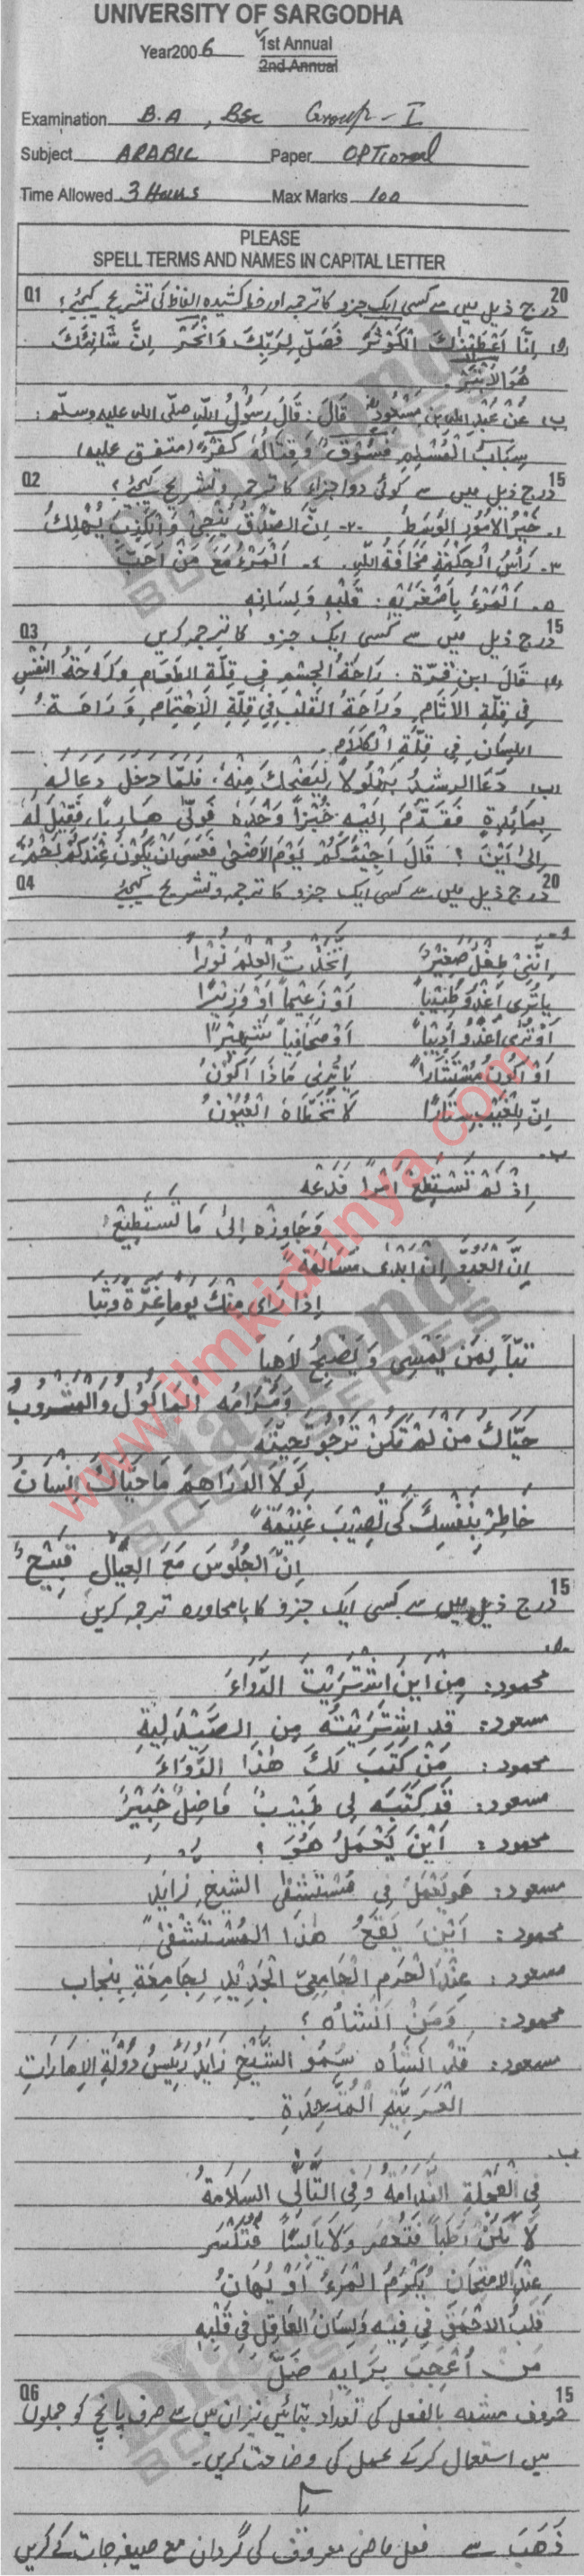 UNIVERSITY OF SARGODHA
Year2006 1st Annual
2nd Annual
Examination B.A , BSc Group - I
Subject ARABIC Paper OPTIONAL
Time Allowed 3 Hours Max Marks 100
PLEASE
SPELL TERMS AND NAMES IN CAPITAL LETTER
Q1 درج ذیل میں سے کسی ایک جزو کا ترجمہ اور خط کشیدہ الفاظ کی تشریح کیجیئے؟ 20
(ا) اِنَّا اَعْطَيْنٰكَ الْكَوْثَرَ فَصَلِّ لِرَبِّكَ وَانْحَرْ اِنَّ شَانِئَكَ
هُوَ الْاَبْتَرُ.
(ب) عَنْ عَبْدِ اللهِ بْنِ مَسْعُودٍ قَالَ: قَالَ رَسُوْلُ اللهِ صلّی اللہ علیہ وسلّم:
سِبَابُ الْمُسْلِمِ فُسُوْقٌ وَقِتَالُهُ كُفْرٌ (متفق علیه)
Q2 درج ذیل میں سے کوئی دو اجزاء کا ترجمہ و تشریح کیجیئے؟ 15
۱۔ خَيْرُ الاُمُوْرِ الوَسَطُ ۲۔ اِنَّ الصِّدْقَ يُنْجِيْ وَالْكَذِبَ يُهْلِكُ
۳۔ رَأْسُ الْحِكْمَةِ مَخَافَةُ اللهِ. ٤۔ اَلْمَرْءُ مَعَ مَنْ اَحَبَّ
۵۔ اَلْمَرْءُ بِاَصْغَرَيْهِ: قَلْبِهٖ وَلِسَانِهٖ
Q3 درج ذیل میں سے کسی ایک جزو کا ترجمہ کریں 15
(ا) قَالَ ابن قرّة: رَاحَةُ الجِسْمِ فِي قِلَّةِ الطَّعَامِ وَرَاحَةُ النَّفْسِ
فِي قِلَّةِ الآثَامِ وَرَاحَةُ القَلْبِ فِي قِلَّةِ الاِهْتِمَامِ وَرَاحَةُ
اللِّسَانِ فِي قِلَّةِ الْكَلَامِ
(ب) دَعَا الرشيدُ بَهْلُولاً لِيَضْحَكَ مِنْهُ. فَلَمَّا دَخَلَ دَعَا لَهُ
بِمَائِدَةٍ فَقُدِّمَ اِلَيْهِ خُبْزًا وَحْدَهُ فَوَلَّى هَارِبًا، فَقِيْلَ لَهُ
اِلَى اَيْنَ؟ قَالَ اَجِيْئُكُمْ يَوْمَ الاَضْحٰى فَعَسَى اَنْ يَّكُوْنَ عِنْدَكُمْ لَحْمٌ
Q4 درج ذیل میں سے کسی ایک جزو کا ترجمہ و تشریح کیجیئے 20
ا۔
اِنَّنِيْ طِفْلٌ صَغِيْرٌ اِتَّخَذْتُ الْعِلْمَ نُوْرًا
يَا تُرٰى اَغْدُو طَبِيْبًا اَوْ زَعِيْمًا اَوْ وَزِيْرًا
اَوْ تُرٰى اَغْدُو اَدِيْبًا اَوْ صَحَافِيًّا شَهِيْرًا
اَوْ اَكُوْنُ مُسْتَشَارًا يَا تُرٰى مَاذَا اَكُوْنُ
اِنَّ لِلْغَيْبِ سِتَارًا لَا تَخَطَّاهُ الْعُيُوْنُ
ب۔
اِذْ لَمْ تَسْتَطِعْ اَمْرًا فَدَعْهُ
وَجَاوِزْهُ اِلٰى مَا تَسْتَطِيْعُ
اِنَّ العَدُوَّ اِنْ اَبْدٰى مُسَالَمَةً
اِذَا رَأى مِنْكَ يَوْمًا غِرَّةً وَثَبَا
تبّاً لِمَنْ يُمْسِي وَيُصْبِحُ لَاهِيًا
وَمَرَامُهُ الْمَأكُوْلُ وَالْمَشْرُوْبُ
حَيَّاكَ مَنْ لَمْ تَكُنْ تَرْجُوْ تَحِيَّتَهُ
لَوْلَا الدَّرَاهِمُ مَا حَيَّاكَ اِنْسَانُ
خَاطِرْ بِنَفْسِكَ كَيْ تُصِيْبَ غَنِيْمَةً
اِنَّ الْجُلُوْسَ مَعَ العِيَالِ قَبِيْحٌ
درج ذیل میں سے کسی ایک جزو کا بامحاورہ ترجمہ کریں 15
ا۔
محمود: مِنْ اَيْنَ اشْتَرَيْتَ الدَّوَاءَ
مسعود: قَدِ اشْتَرَيْتُهُ مِنَ الصَّيْدَلِيَّةِ
محمود: مَنْ كَتَبَ لَكَ هٰذَا الدَّوَاءَ
مسعود: قَدْ كَتَبَهُ لِي طَبِيْبٌ فَاضِلٌ خَبِيْرٌ
محمود: اَيْنَ يَعْمَلُ هُوَ؟
مسعود: هُوَ يَعْمَلُ فِي مُسْتَشْفَى الشيخ زايد
محمود: اَيْنَ يَقَعُ هٰذَا المُسْتَشْفٰى
مسعود: عِنْدَ الْحَرَمِ الْجَامِعِيِّ الْجَدِيْدِ لِجَامِعَةِ بنجاب
محمود: وَمَنْ اَنْشَأَهُ؟
مسعود: قَدْ اَنْشَأَهُ سُمُوُّ الشَّيْخِ زَايد رَئِيْسُ دَوْلَةِ الاِمَارَاتِ
الْعَرَبِيَّةِ الْمُتَّحِدَةِ
ب۔
فِي الْعَجَلَةِ النَّدَامَةُ وَفِي التَّأَنِّي السَّلَامَةُ
لَا تَكُنْ رَطْبًا فَتُعْصَرَ وَلَا يَابِسًا فَتُكْسَرَ
عِنْدَ الاِمْتِحَانِ يُكْرَمُ الْمَرْءُ اَوْ يُهَانُ
قَلْبُ الاَحْمَقِ فِي فِيْهِ وَلِسَانُ العَاقِلِ فِي قَلْبِهِ
مَنْ اُعْجِبَ بِرَايِهِ ضَلَّ
Q6 حروف مشبہ بالفعل کی تعداد بتائیں نیز ان میں سے صرف پانچ کو جملوں 15
میں استعمال کرکے عمل کی وضاحت کریں۔
یا
ذَهَبَ سے فعل ماضی معروف کی گردان مع صیغہ جات کے کریں
www.ilmkidunya.com